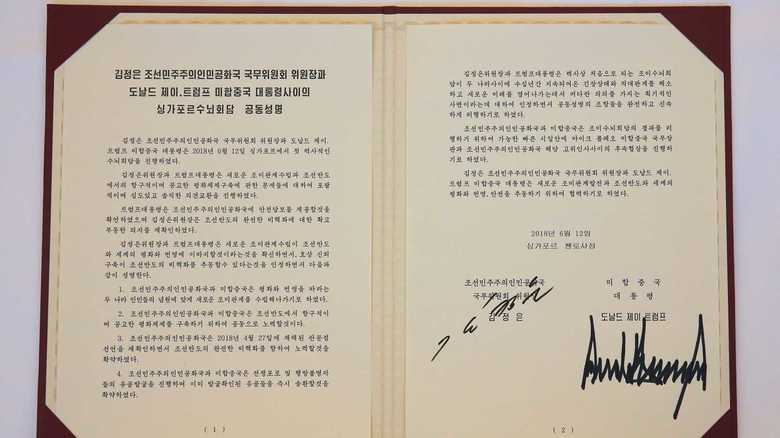 김정은 조선민주주의인민공화국 국무위원회 위원장과
도날드 제이.트럼프 미합중국 대통령사이의
싱가포르수뇌회담 공동성명
김정은 조선민주주의인민공화국 국무위원회 위원장과 도날드 제이.
트럼프 미합중국 대통령은 2018년 6월 12일 싱가포르에서 첫 력사적인
수뇌회담을 진행하였다.
김정은위원장과 트럼프대통령은 새로운 조미관계수립과 조선반도
에서의 항구적이며 공고한 평화체제구축에 관한 문제들에 대하여 포괄
적이며 심도있고 솔직한 의견교환을 진행하였다.
트럼프대통령은 조선민주주의인민공화국에 안전담보를 제공할것을
확언하였으며 김정은위원장은 조선반도의 완전한 비핵화에 대한 확고
부동한 의지를 재확인하였다.
김정은위원장과 트럼프대통령은 새로운 조미관계수립이 조선반도
와 세계의 평화와 번영에 이바지할것이라는것을 확신하면서, 호상 신뢰
구축이 조선반도의 비핵화를 추동할수 있다는것을 인정하면서 다음과
같이 성명한다.
1. 조선민주주의인민공화국과 미합중국은 평화와 번영을 바라는
두 나라 인민들의 념원에 맞게 새로운 조미관계를 수립해나가기로 하였다.
2. 조선민주주의인민공화국과 미합중국은 조선반도에서 항구적이
며 공고한 평화체제를 구축하기 위하여 공동으로 노력할것이다.
3. 조선민주주의인민공화국은 2018년 4월 27일에 채택된 판문점
선언을 재확인하면서 조선반도의 완전한 비핵화를 향하여 노력할것을
확약하였다.
4. 조선민주주의인민공화국과 미합중국은 전쟁포로 및 행방불명자
들의 유골발굴을 진행하며 이미 발굴확인된 유골들을 즉시 송환할것을
확약하였다.
( 1 )
김정은위원장과 트럼프대통령은 력사상 처음으로 되는 조미수뇌회
담이 두 나라사이에 수십년간 지속되여온 긴장상태와 적대관계를 해소
하고 새로운 미래를 열어나가는데서 커다란 의의를 가지는 획기적인
사변이라는데 대하여 인정하면서 공동성명의 조항들을 완전하고 신속
하게 리행하기로 하였다.
조선민주주의인민공화국과 미합중국은 조미수뇌회담의 결과를 리
행하기 위하여 가능한 빠른 시일안에 마이크 폼페오 미합중국 국무장
관과 조선민주주의인민공화국 해당 고위인사사이의 후속협상을 진행하
기로 하였다.
김정은 조선민주주의인민공화국 국무위원회 위원장과 도날드 제이.
트럼프 미합중국 대통령은 새로운 조미관계발전과 조선반도와 세계의
평화와 번영, 안전을 추동하기 위하여 협력하기로 하였다.
2018년 6월 12일
싱가포르 쎈토사섬
조선민주주의인민공화국
국무위원회 위원장
김 정 은
미 합 중 국
대 통 령
도날드 제이.트럼프
( 2 )